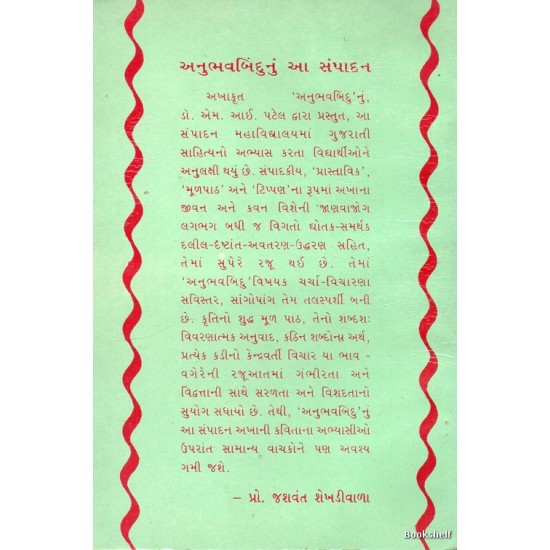 અનુભવબિંદુનું આ સંપાદન
અખાકૃત 'અનુભવબિંદુ'નું,
ડો. એમ. આઈ. પટેલ દ્વારા પ્રસ્તુત, આ
સંપાદન મહાવિદ્યાલયમાં ગુજરાતી
સાહિત્યનો અભ્યાસ કરતા વિદ્યાર્થીઓને
અનુલક્ષી થયું છે. સંપાદકીય, 'પ્રાસ્તાવિક',
'મૂળપાઠ' અને 'ટિપ્પણ'ના રૂપમાં અખાના
જીવન અને કવન વિશેની જાણવાજોગ
લગભગ બધી જ વિગતો દ્યોતક-સમર્થક
દલીલ-દૃષ્ટાંત-અવતરણ-ઉદ્ધરણ સહિત,
તેમાં સુપેરે રજૂ થઈ છે. તેમાં
'અનુભવબિંદુ'વિષયક ચર્ચા-વિચારણા
સવિસ્તર, સાંગોપાંગ તેમ તલસ્પર્શી બની
છે. કૃતિનો શુદ્ધ મૂળ પાઠ, તેનો શબ્દશઃ
વિવરણાત્મક અનુવાદ, કઠિન શબ્દોના અર્થ,
પ્રત્યેક કડીનો કેન્દ્રવર્તી વિચાર યા ભાવ -
વગેરેની રજૂઆતમાં ગંભીરતા અને
વિદ્વત્તાની સાથે સરળતા અને વિશદતાનો
સુયોગ સધાયો છે. તેથી, 'અનુભવબિંદુ'નું
આ સંપાદન અખાની કવિતાના અભ્યાસીઓ
ઉપરાંત સામાન્ય વાચકોને પણ અવશ્ય
ગમી જશે.
– પ્રો. જશવંત શેખડીવાળા
Bookshelf